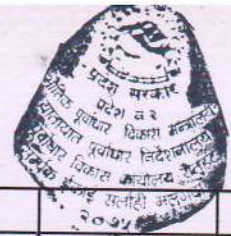 प्रदेश सरकार
प्रदेश नं २
भौतिक पूर्वाधार विकास मन्त्रालय
यातायात पूर्वाधार निर्देशनालय
पूर्वाधार विकास कार्यालय
सम्पर्क इकाई सर्लाही मलंगवा
२०७५